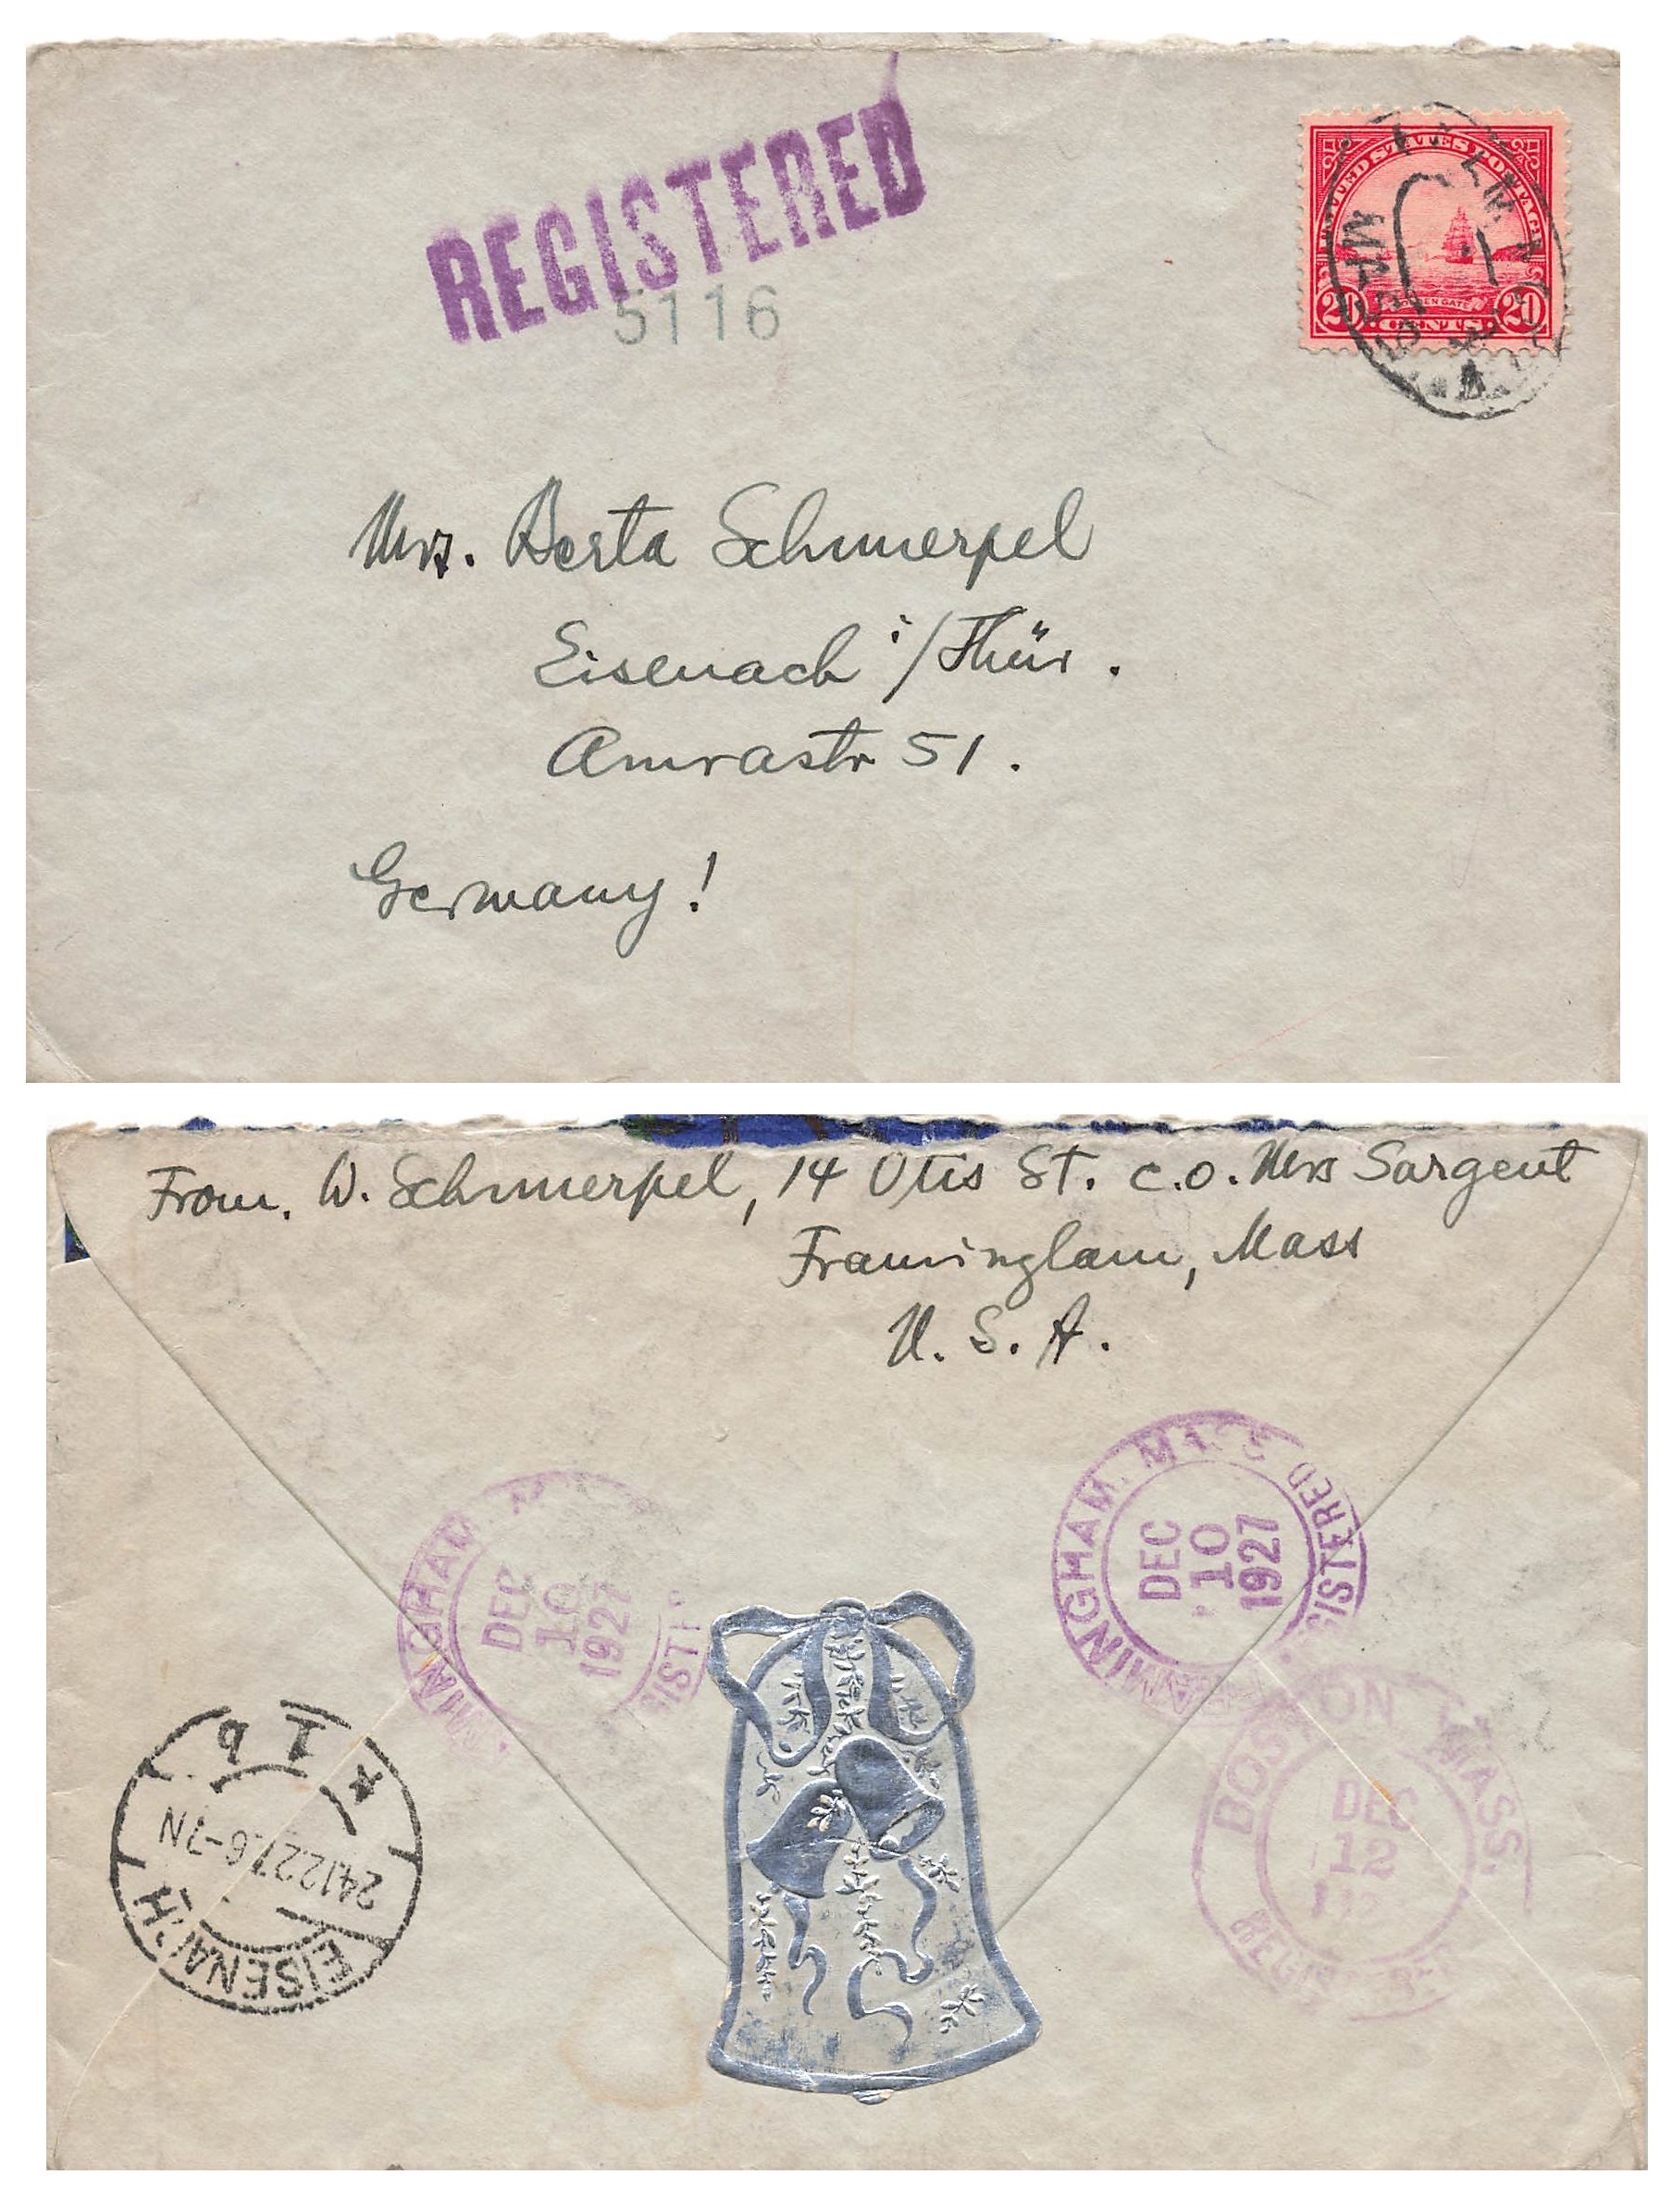 REGISTERED
5116
UNITED STATES POSTAGE
GOLDEN GATE
20 CENTS 20
MASS.
Mrs. Berta Schmerpel
Eisenach i/Thür.
Amrastr 51.
Germany!
From. W. Schmerpel, 14 Otis St. c.o. Mrs Sargent
Framingham, Mass
U. S. A.
FRAMINGHAM, MASS
DEC
10
1927
REGISTERED
MINGHAM
DEC
10
1927
BOSTON MASS.
DEC
12
REGISTERED
EISENACH
24.12.27.6-7N
* 1 b